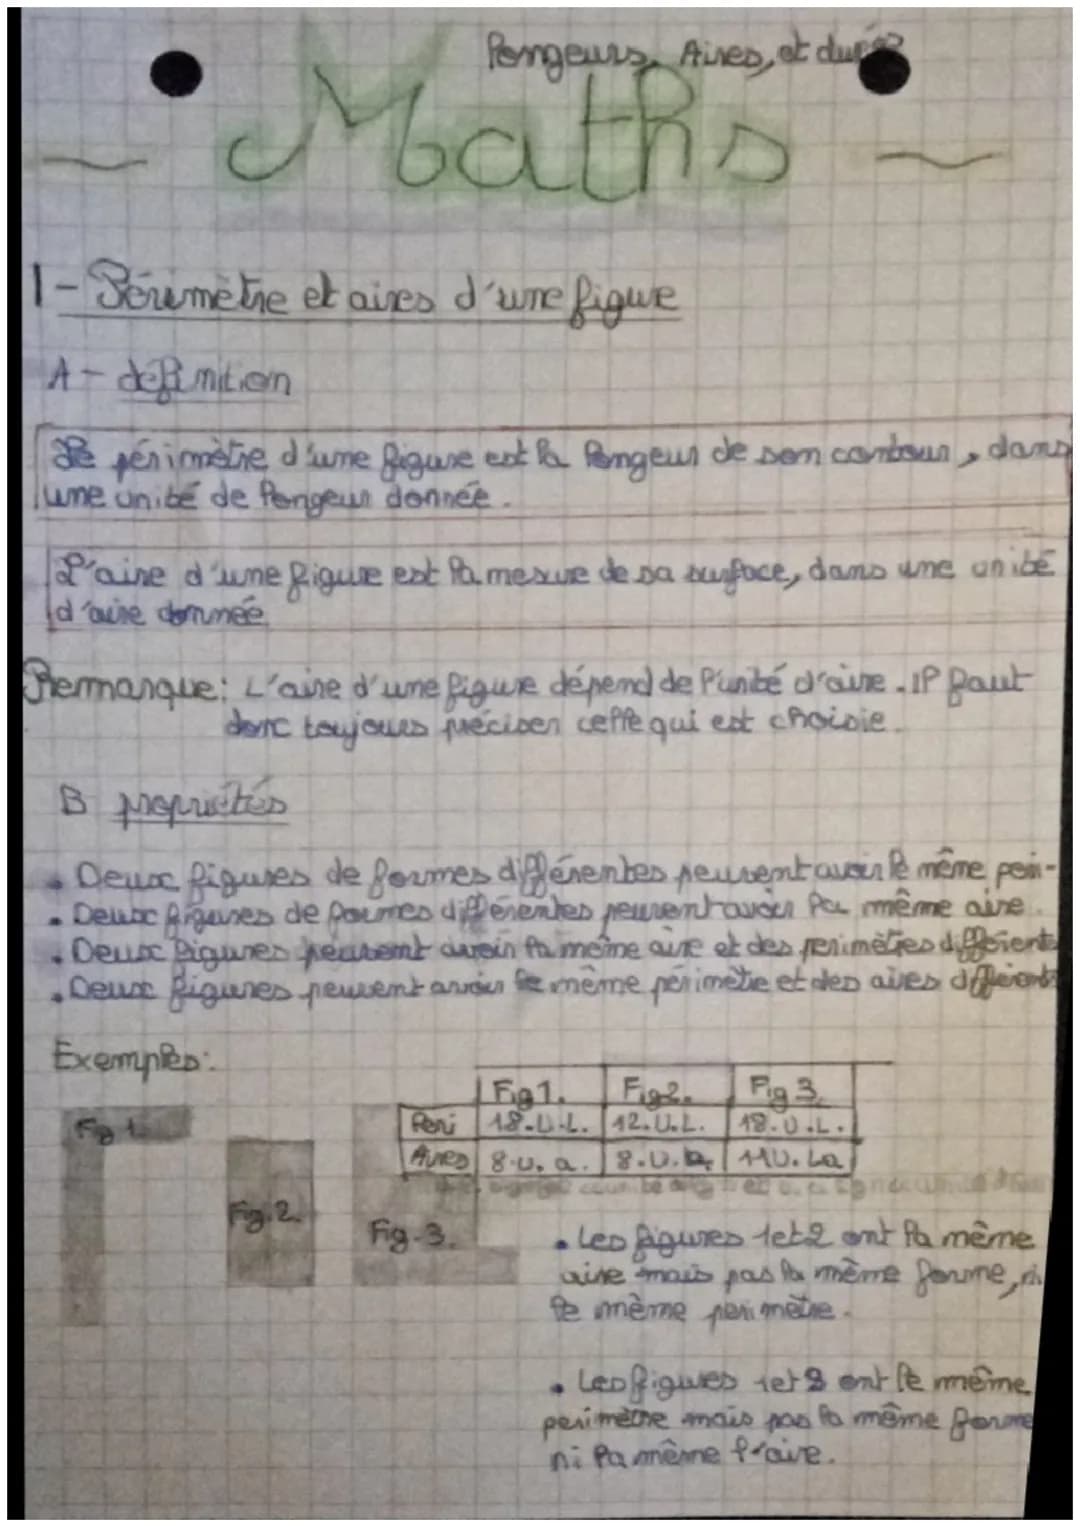 Longeurs, Aires, et durés
Maths
I - Périmètre et aires d'une figure
A - définition
Le périmètre d'une figure est la longeur de son contour, dans
une unité de longeur donnée.
L'aire d'une figure est la mesure de sa surface, dans une unité
d'aire donnée.
Remarque: L'aire d'une figure dépend de l'unité d'aire. Il faut
donc toujours préciser celle qui est choisie.
B propriétés
• Deux figures de formes différentes peuvent avoir le même peri-
• Deux figures de formes différentes peuvent avoir la même aire.
• Deux figures peuvent avoir la même aire et des perimètres différents
• Deux figures peuvent avoir le même périmètre et des aires différents
Exemples:
Fig 1. Fig 2. Fig 3.
Peri 18.U.L. 12.U.L. 18.U.L.
Aires 8.U.a. 8.U.a. 11U.La
Fig 1
Fig.2.
Fig.3.
• Les figures 1 et 2 ont la même
aire mais pas la même forme, ni
le même perimètre.
• Les figures 1 et 3 ont le même
perimètre mais pas la même forme
ni la même l'aire.